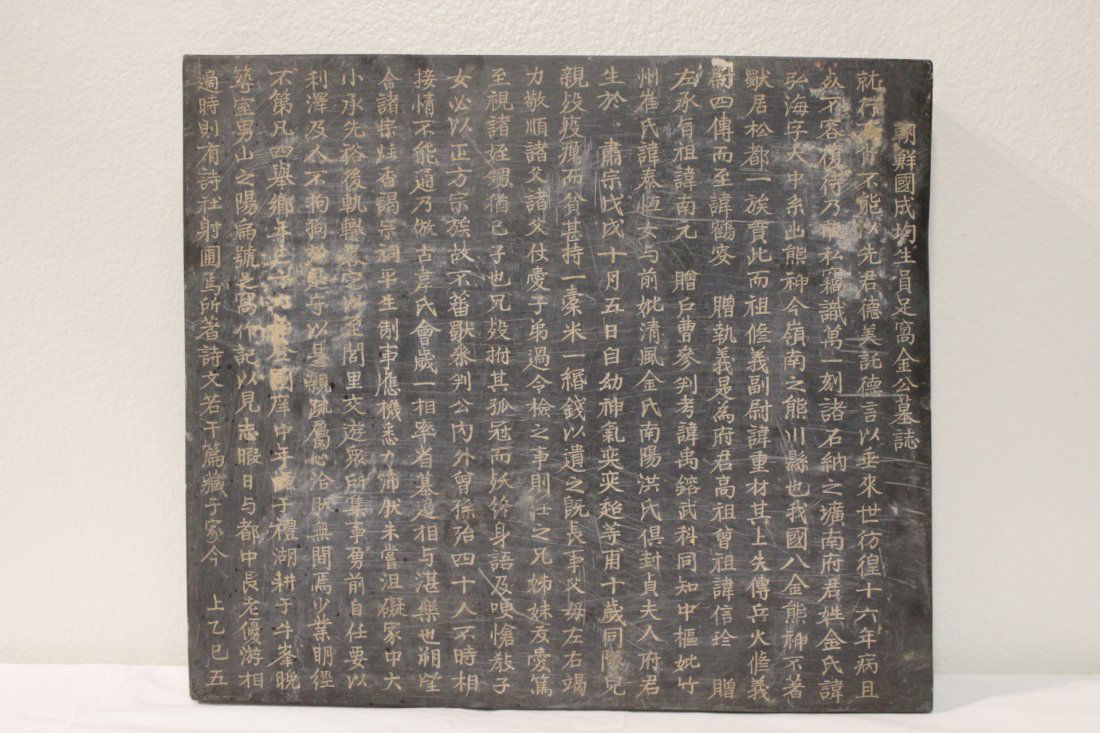 朝鮮國成均生員足窩金公墓誌
就行 不能以先君德美託德言以垂來世彷徨十六年病且
不容 待乃 私竊識萬一刻諸石納之壙南府君姓金氏諱
弘海字大中系出熊神今嶺南之熊川縣也我國八金熊神不著
獻居松都一族賁此而祖修義副尉諱重材其上失傳兵火修義
尉四傳而至諱鶴麥 贈執義是為府君高祖曾祖諱信珍 贈
左承旨祖諱南元 贈戶曹參判考諱禹鎔武科同知中樞妣竹
州崔氏諱泰恒女与前妣清風金氏南陽洪氏俱封貞夫人府君
生於 肅宗戊戌十月五日自幼神氣奕奕越等甫十歲同 兒
親歿疫癘而貧甚持一槖米一緡錢以遺之既長事父母左右竭
力敬順諸父諸父仕愛子弟過令檢之事則任之兄姊妹友愛篤
至視諸姪猶己子也兄歿拊其孤冠而妖終身語及哽愴敎子
女必以正方宗族故不蕃獻參判公內外曾孫殆四十人不時相
接情不能通乃倣古韋氏會歲一相率省墓迨相与湛樂也朔望
會諸宗炷香謁宗祠平生制事應機悉力沛肰未嘗沮礙家中大
小承先裕後軌轍 閭里交遊衆所集事勇前自任要以
利澤及人不拘拘 親疏屬心洽肰無間焉少業明經
不第凡四擧鄕 庠中年 于禮湖耕于斗峯晚
築室男山之陽扁號足窩作記以見志暇日与都中長老優游相
適時則有詩社射圃焉所著詩文若干篇藏于家今 上乙巳五